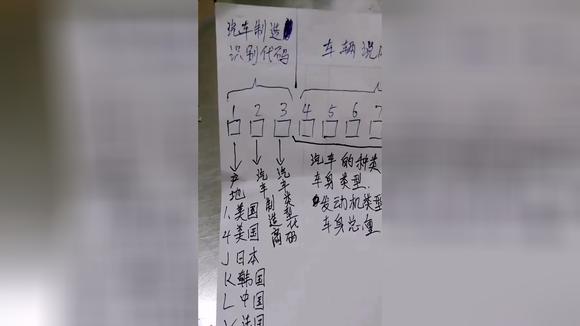 汽车制造
识别代码
车辆说
1 2 3 4 5 6 7
产地
汽车制造商
汽车类型代码
汽车的种类
车身类型.
发动机类型
车身总重
1.美国
4 美国
J 日本
K 韩国
L 中国
V 法国